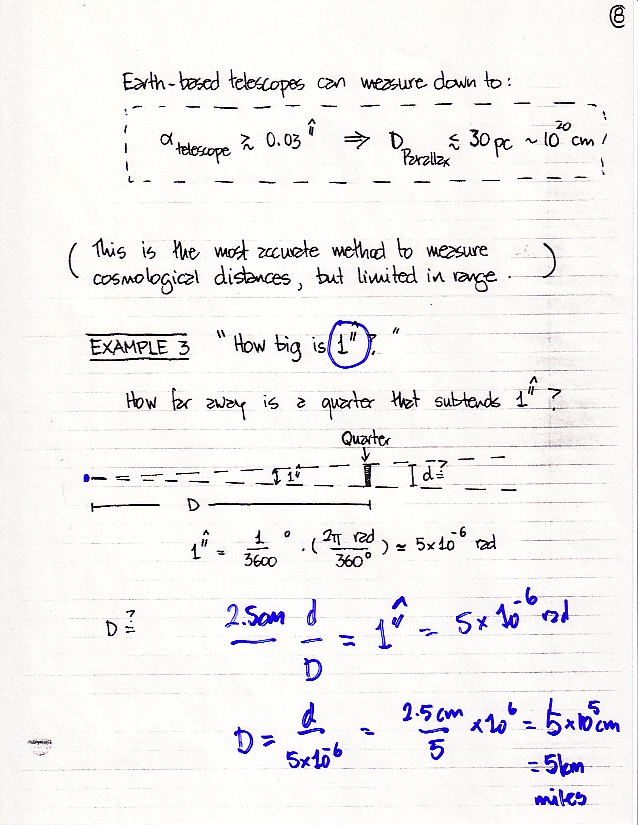 8
Earth-based telescopes can measure down to:
α telescope ≳ 0.03" ⇒ D Parallax ≲ 30 pc ~ 10^20 cm
(This is the most accurate method to measure
cosmological distances, but limited in range.)
EXAMPLE 3 "How big is 1"?"
How far away is a quarter that subtends 1"?
Quarter
1" d=?
D
1" = 1/3600 ° · (2π rad/360°) ≃ 5×10^-6 rad
D=? 2.5cm d/D = 1" = 5×10^-6 rad
D = d/5×10^-6 = 2.5cm/5 ×10^6 = 5×10^5 cm
= 5km
miles